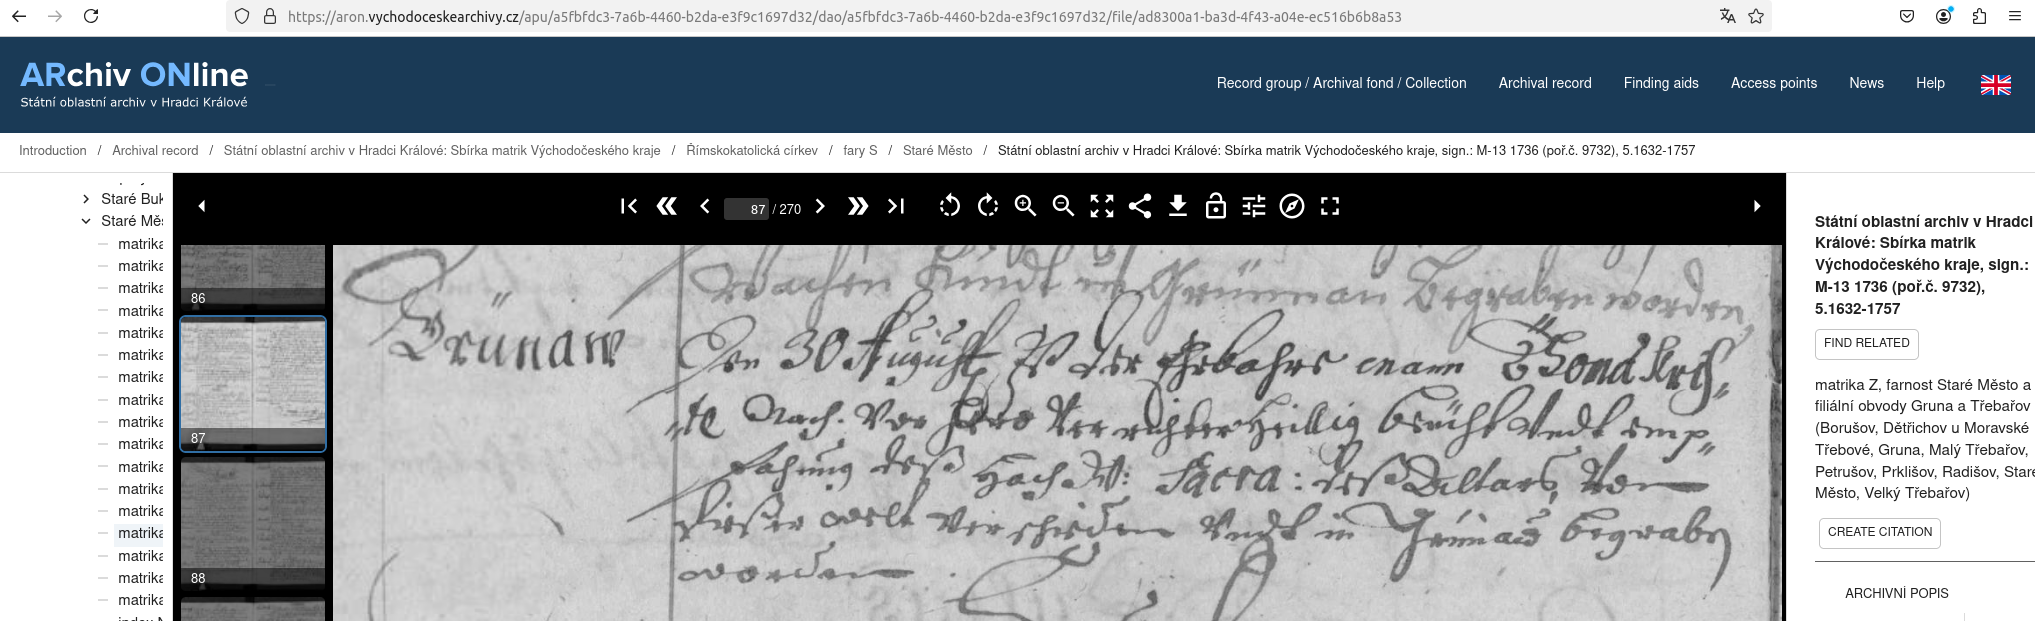 https://aron.vychodoceskearchivy.cz/apu/a5fbfdc3-7a6b-4460-b2da-e3f9c1697d32/dao/a5fbfdc3-7a6b-4460-b2da-e3f9c1697d32/file/ad8300a1-ba3d-4f43-a04e-ec516b6b8a53
ARchiv ONline
Státní oblastní archiv v Hradci Králové
Record group / Archival fond / Collection Archival record Finding aids Access points News Help
Introduction / Archival record / Státní oblastní archiv v Hradci Králové: Sbírka matrik Východočeského kraje / Římskokatolická církev / fary S / Staré Město / Státní oblastní archiv v Hradci Králové: Sbírka matrik Východočeského kraje, sign.: M-13 1736 (poř.č. 9732), 5.1632-1757
Staré Buk
Staré Měs
matrika
matrika
matrika
matrika
matrika
matrika
matrika
matrika
matrika
matrika
matrika
matrika
matrika
matrika
matrika
matrika
matrika
87 / 270
86
87
88
in Grünnau Begraben worden
Grünaw
Den 30 August Ist der Ehrbahre
te Nach Vor
pfahung deß Hach W: Sacra: deß Altars Von
dieser welt Verschieden Undt in Grünaw begraben
worden
Státní oblastní archiv v Hradci
Králové: Sbírka matrik
Východočeského kraje, sign.:
M-13 1736 (poř.č. 9732),
5.1632-1757
FIND RELATED
matrika Z, farnost Staré Město a
filiální obvody Gruna a Třebařov
(Borušov, Dětřichov u Moravské
Třebové, Gruna, Malý Třebařov,
Petrušov, Prklišov, Radišov, Staré
Město, Velký Třebařov)
CREATE CITATION
ARCHIVNÍ POPIS